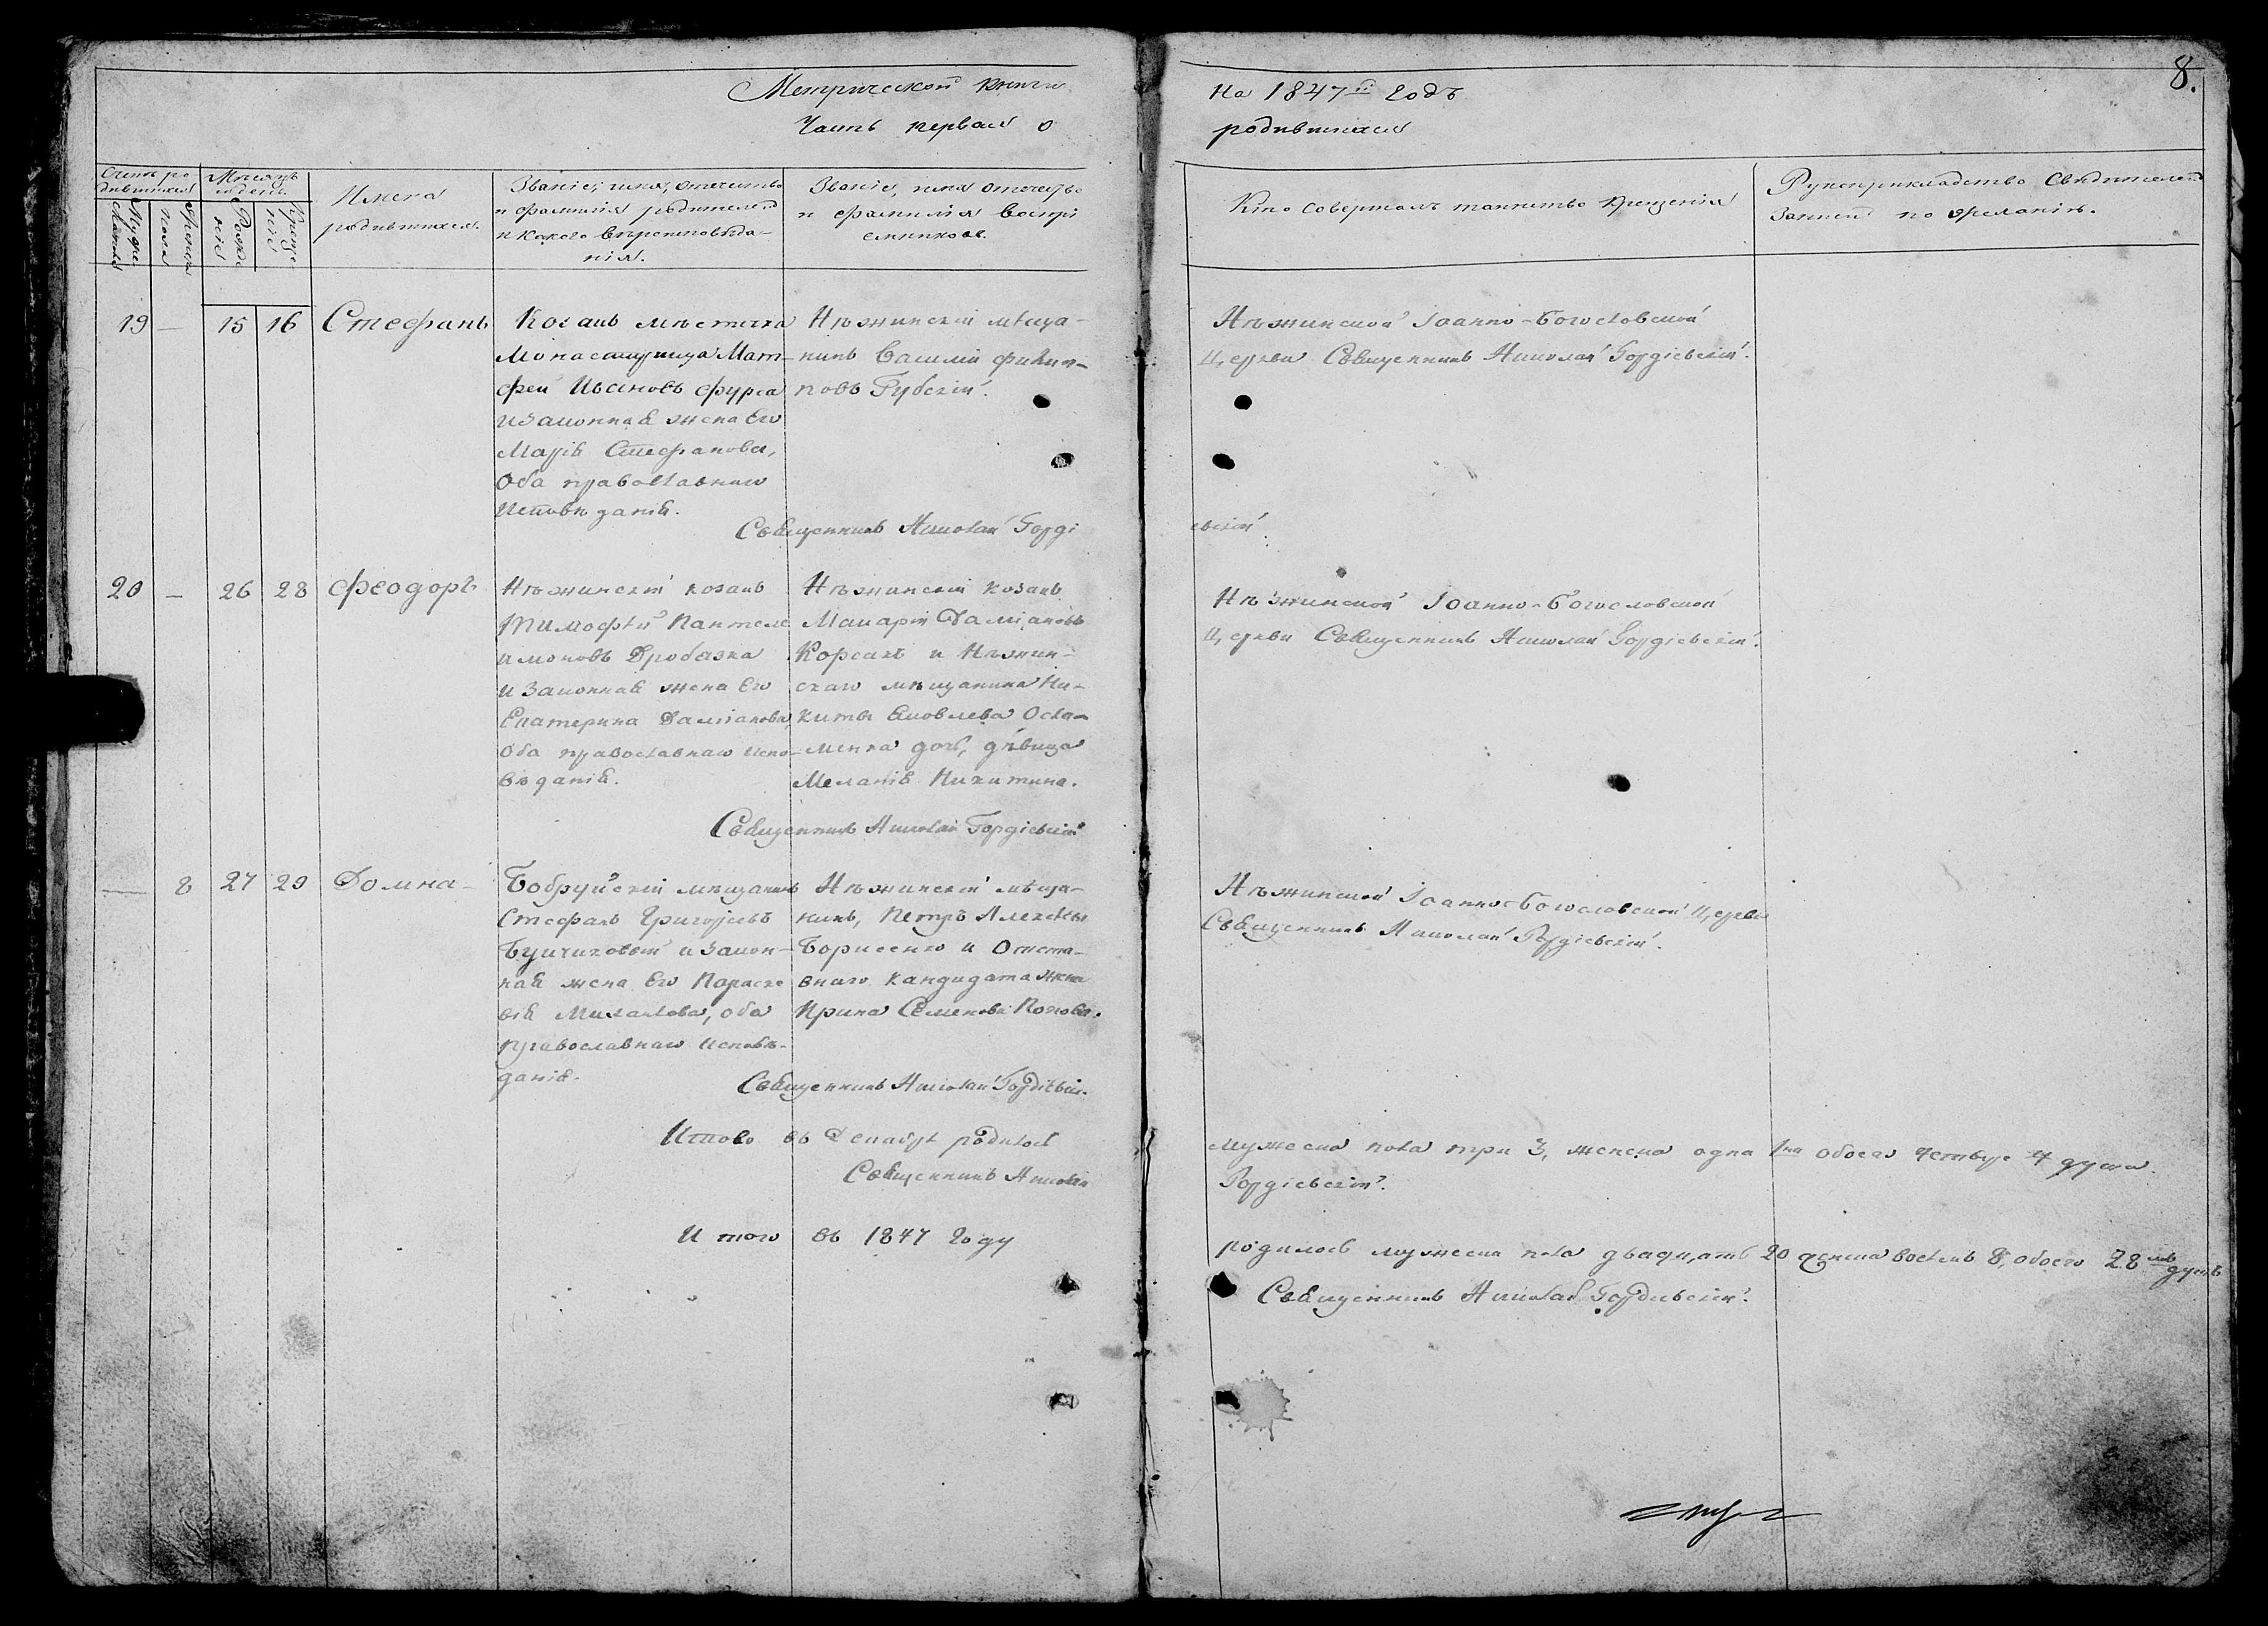 Метрической книги
Часть первая о
На 1847й годъ
родившихся
8.
Счетъ ро-
дившихся
Мужеска
пола
Женска
Мѣсяцъ
и день
Рожде
нія
Креще
нія
Имена
родившихся.
Званіе, имя, отчество
и фамилія родителей
и какого вѣроисповѣда-
нія.
Званіе, имя отчество
и фамилія воспрі
емниковъ.
Кто совершалъ таинство крещенія
Рукоприкладство свидѣтелей
записи по желанію.
19 — 15 16 Стефанъ
Козакъ мѣстечка
Монастырища Мат-
фей Ивановъ Фурса
и законная жена его
Марія Стефанова,
оба православнаго
исповѣданія.
Нѣжинскій мѣща-
нинъ Василій Филип-
повъ Губскій.
Нѣжинской Іоанно-Богословской
Церкви Священникъ Николай Гордіевскій.
Священникъ Николай Горді
евскій.
20 — 26 28 Феодоръ
Нѣжинскій козакъ
Тимофѣй Пантеле
имоновъ Дробязка
и законная жена его
Екатерина Даміанова,
оба православнаго испо-
вѣданія.
Нѣжинскій козакъ
Макарій Даміановъ
Корсакъ и Нѣжин-
скаго мѣщанина Ни-
киты Яковлева Оста-
менка дочь, дѣвица
Меланія Никитина.
Нѣжинской Іоанно-Богословской
Церкви Священникъ Николай Гордіевскій.
Священникъ Николай Гордіевскій
— 8 27 29 Домна
Бобруйскій мѣщанинъ
Стефанъ Григорьевъ
и закон-
ная жена его Параске
вія Михайлова, оба
православнаго исповѣ-
данія.
Нѣжинскій мѣща-
нинъ, Петръ Алексѣевъ
Борисенко и отста-
внаго кандидата жена
Ирина Семенова Попова.
Нѣжинской Іоанно-Богословской Церкви
Священникъ Николай Гордіевскій.
Священникъ Николай Гордіевскій.
Итого въ Декабрѣ родилось
мужеска пола три 3, женска одна 1на обоего четыре 4 души.
Священникъ Николай
Гордіевскій.
Итого въ 1847 году
родилось мужеска пола двадцать 20 женска восемь 8, обоего 28мь душъ
Священникъ Николай Гордіевскій.